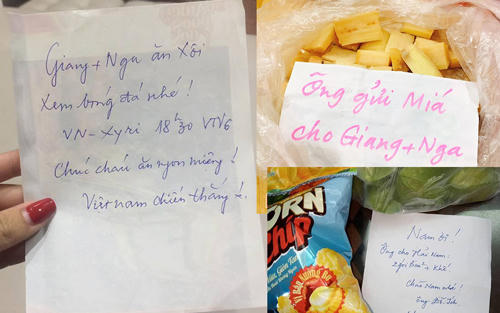 Giang + Nga ăn xôi
Xem bóng đá nhé!
VN - Xyri 18h30 VTV6
Chúc cháu ăn ngon miệng!
Việt nam chiến thắng!
Ông gửi Miá
cho Giang + Nga
ORN
Chip
Nam ơi!
Ông cho Hải Nam:
2 gói Bim² + Khế